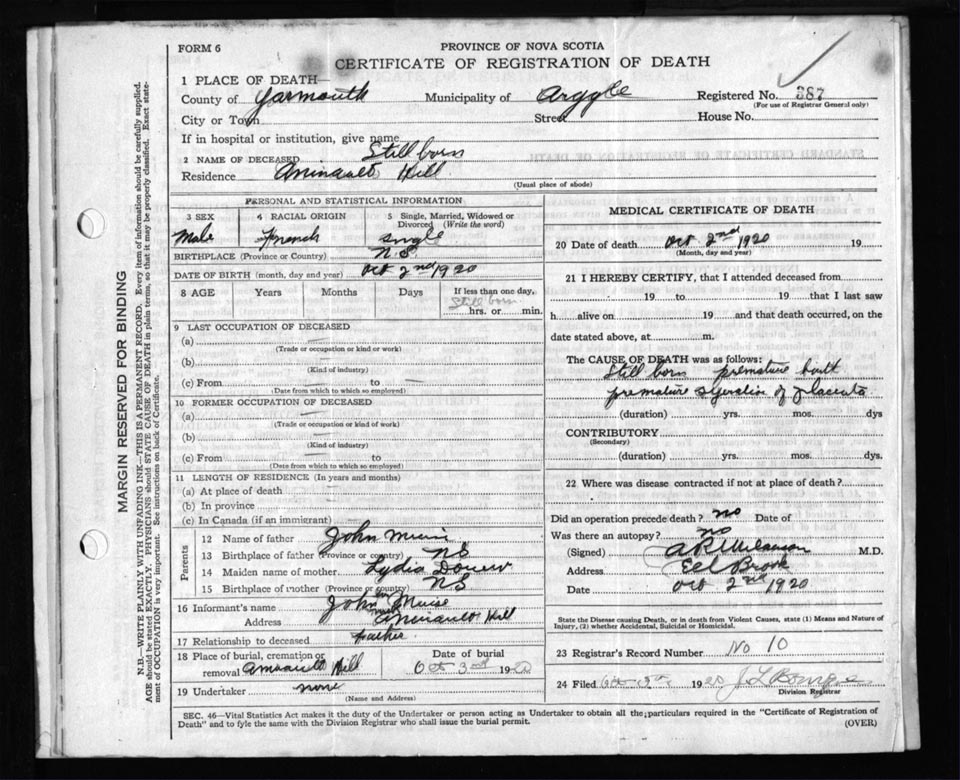 FORM 6
PROVINCE OF NOVA SCOTIA
CERTIFICATE OF REGISTRATION OF DEATH
1 PLACE OF DEATH—
County of Yarmouth Municipality of Argyle Registered No. 387
(For use of Registrar General only)
City or Town Street House No.
If in hospital or institution, give name
2 NAME OF DECEASED Still born
Residence Hill
(Usual place of abode)
MARGIN RESERVED FOR BINDING
N.B.—WRITE PLAINLY WITH UNFADING INK—THIS IS A PERMANENT RECORD. Every item of information should be carefully supplied.
AGE should be stated EXACTLY. PHYSICIANS should STATE CAUSE OF DEATH in plain terms, so that it may be properly classified. Exact state-
ment of OCCUPATION is very important. See instructions on back of Certificate.
PERSONAL AND STATISTICAL INFORMATION
3 SEX 4 RACIAL ORIGIN 5 Single, Married, Widowed or Divorced (Write the word)
Male French single
BIRTHPLACE (Province or Country) N.S.
DATE OF BIRTH (month, day and year) Oct 2nd 1920
8 AGE Years Months Days If less than one day,
Still born
hrs. or min.
9 LAST OCCUPATION OF DECEASED
(a)
(Trade or occupation or kind or work)
(b)
(Kind of industry)
(c) From to
(Date from which to which so employed)
10 FORMER OCCUPATION OF DECEASED
(a)
(Trade or occupation or kind of work)
(b)
(Kind of industry)
(c) From to
(Date from which to which so employed)
11 LENGTH OF RESIDENCE (In years and months)
(a) At place of death
(b) In province
(c) In Canada (if an immigrant)
Parents
12 Name of father John
13 Birthplace of father (Province or country) NS
14 Maiden name of mother Lydia
15 Birthplace of mother (Province or country) NS
16 Informant's name John Muise
Address Hill
17 Relationship to deceased Father
18 Place of burial, cremation or removal Hill
Date of burial Oct 3rd 1920
19 Undertaker none
(Name and Address)
MEDICAL CERTIFICATE OF DEATH
20 Date of death Oct 2nd 1920 19
(Month, day and year)
21 I HEREBY CERTIFY, that I attended deceased from
19 to 19 that I last saw
h alive on 19 and that death occurred, on the
date stated above, at m.
The CAUSE OF DEATH was as follows:
Still born premature
premature of placenta
(duration) yrs. mos. dys
CONTRIBUTORY
(Secondary)
(duration) yrs. mos. dys.
22 Where was disease contracted if not at place of death?
Did an operation precede death? no Date of
Was there an autopsy? no
(Signed) M.D.
Address Eel Brook
Date Oct 2nd 1920
State the Disease causing Death, or in death from Violent Causes, state (1) Means and Nature of
Injury, (2) whether Accidental, Suicidal or Homicidal.
23 Registrar's Record Number No 10
24 Filed Oct 1920 J L Bourque
Division Registrar
SEC. 46—Vital Statistics Act makes it the duty of the Undertaker or person acting as Undertaker to obtain all the particulars required in the "Certificate of Registration of
Death" and to fyle the same with the Division Registrar who shall issue the burial permit.
(OVER)